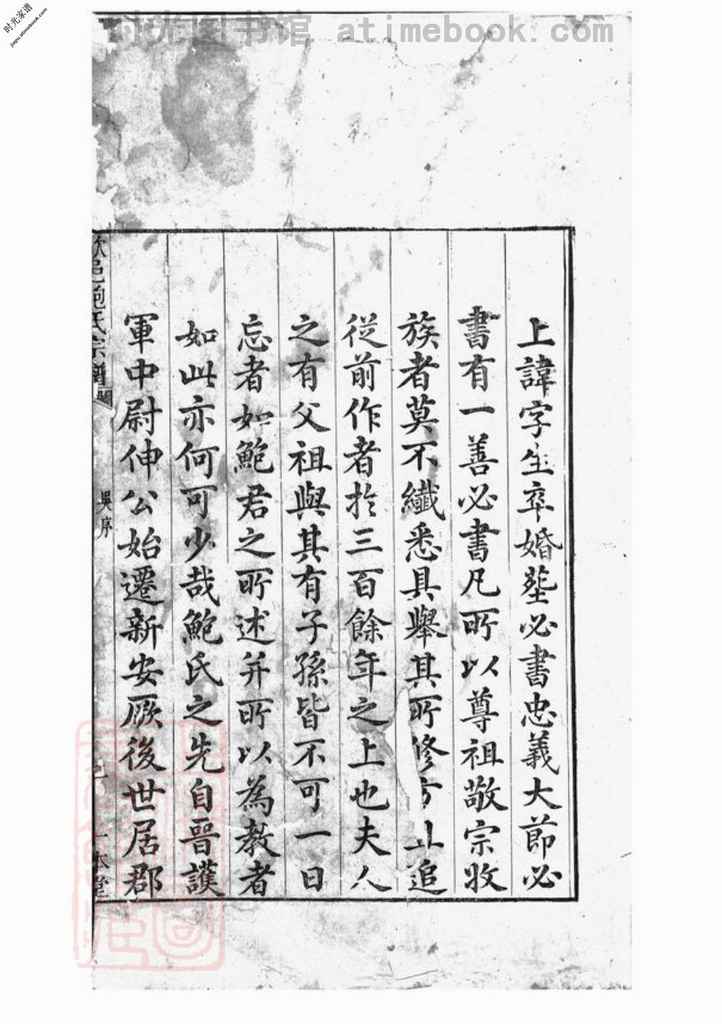 时光图书馆 atimebook.com
时光家谱
jiapu.atimebook.com
上諱字生卒婚塟必書忠義大節必
書有一善必書凡所以尊祖敬宗收
族者莫不纖悉具舉其所修方止追
從前作者扵三百餘年之上也夫人
之有父祖與其有子孫皆不可一日
忘者如鮑君之所述并所以為教者
如此亦何可少哉鮑氏之先自晉護
軍中尉伸公始遷新安厥後世居郡
歙邑鮑氏宗譜
吳序
一本堂